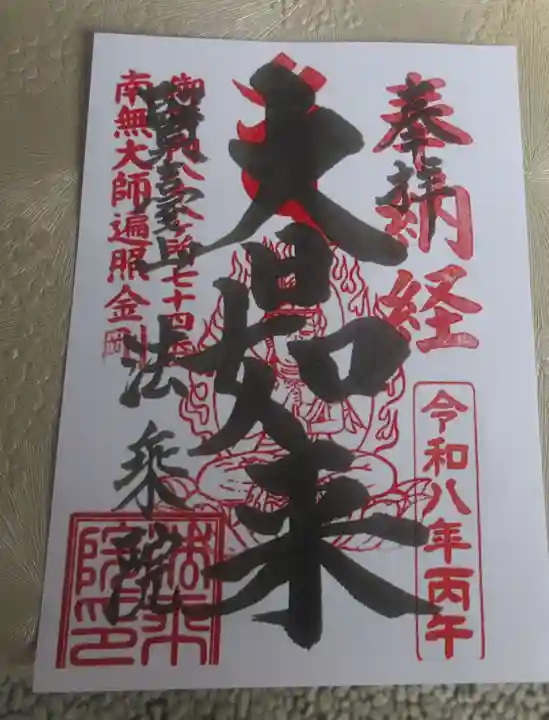 奉拝
納経
令和八年丙午
大日如来
御府内八十八ヶ所七十四番
南無大師遍照金剛
賢臺山
法乗院
法乗院印